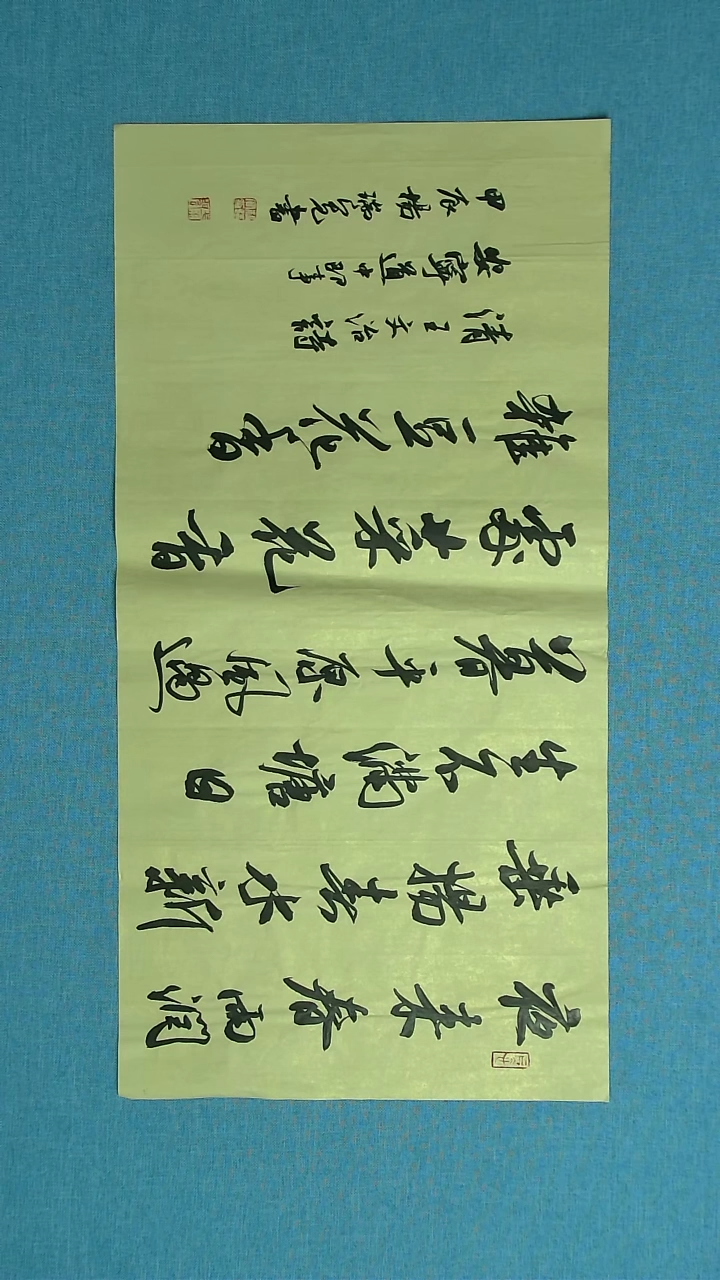 夜来春雨潤
垂楊春水新
生不滿塘日
暮平原風過
處菜花香
雜豆花香
清王文治詩
安寧道中即事
甲辰楊瑞書